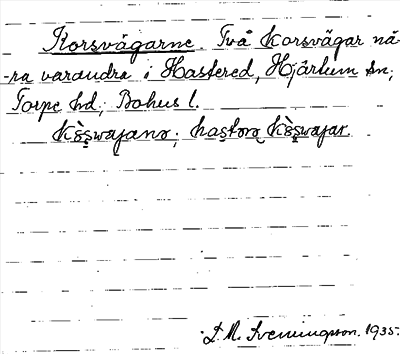 Korsvägarne. Två Korsvägar nä-
-ra varandra i Hastered, Hjärtum sn;
Torpe hd; Bohus l.
kò̀ṣwajana; hastərə kò̀ṣwajar.
D. M. Svenningsson. 1935.